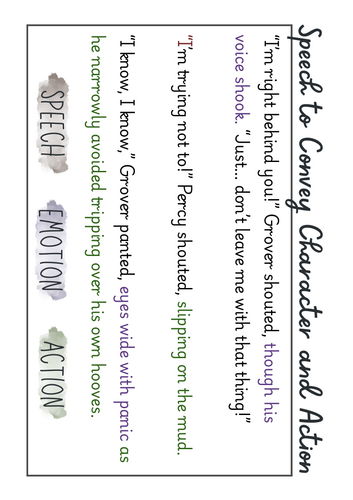 Speech to Convey Character and Action
"I'm right behind you!" Grover shouted, though his
voice shook. "Just... don't leave me with that thing!"
"I'm trying not to!" Percy shouted, slipping on the mud.
"I know, I know," Grover panted, eyes wide with panic as
he narrowly avoided tripping over his own hooves.
SPEECH EMOTION ACTION